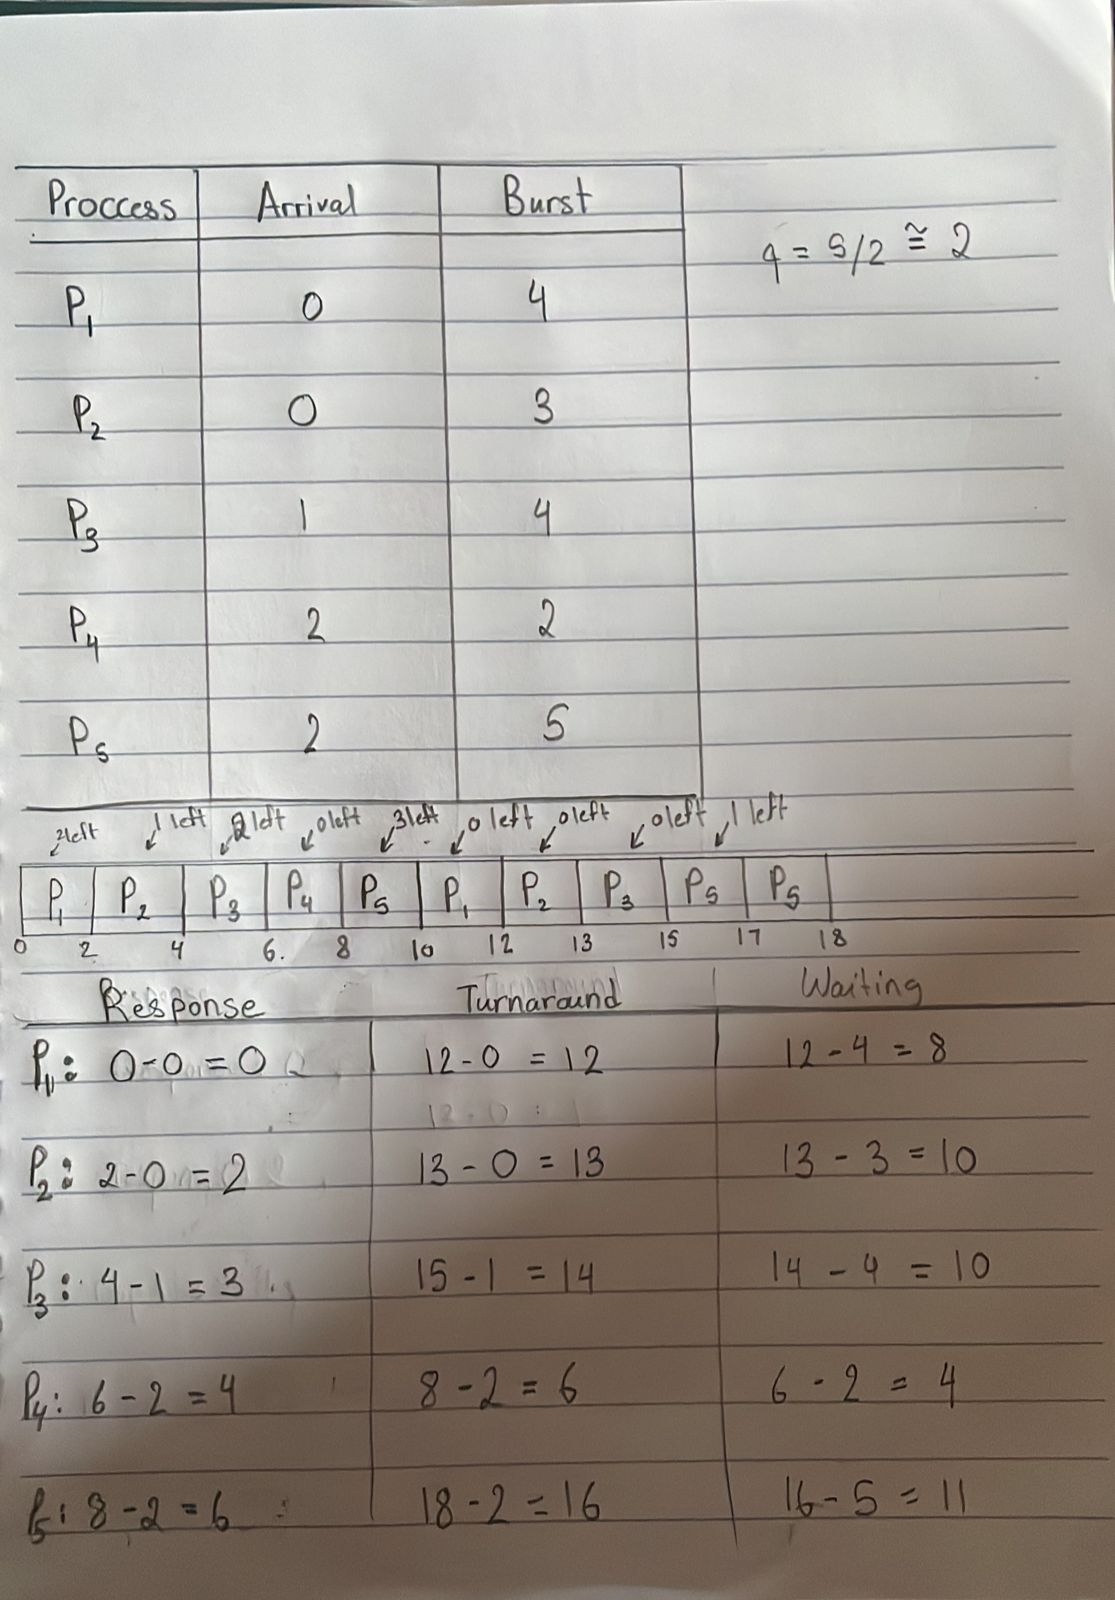 Proccess Arrival Burst
q = 5/2 ≅ 2
P1 0 4
P2 0 3
P3 1 4
P4 2 2
P5 2 5
2left 1 left 2 left 0left 3left 0 left 0left 0left 1 left
P1 P2 P3 P4 P5 P1 P2 P3 P5 P5
0 2 4 6. 8 10 12 13 15 17 18
Response Turnaround Waiting
P1: 0-0 = 0 12-0 = 12 12 - 4 = 8
P2: 2-0 = 2 13 - 0 = 13 13 - 3 = 10
P3: 4-1 = 3 15 - 1 = 14 14 - 4 = 10
P4: 6 - 2 = 4 8 - 2 = 6 6 - 2 = 4
P5: 8 - 2 = 6 18 - 2 = 16 16 - 5 = 11